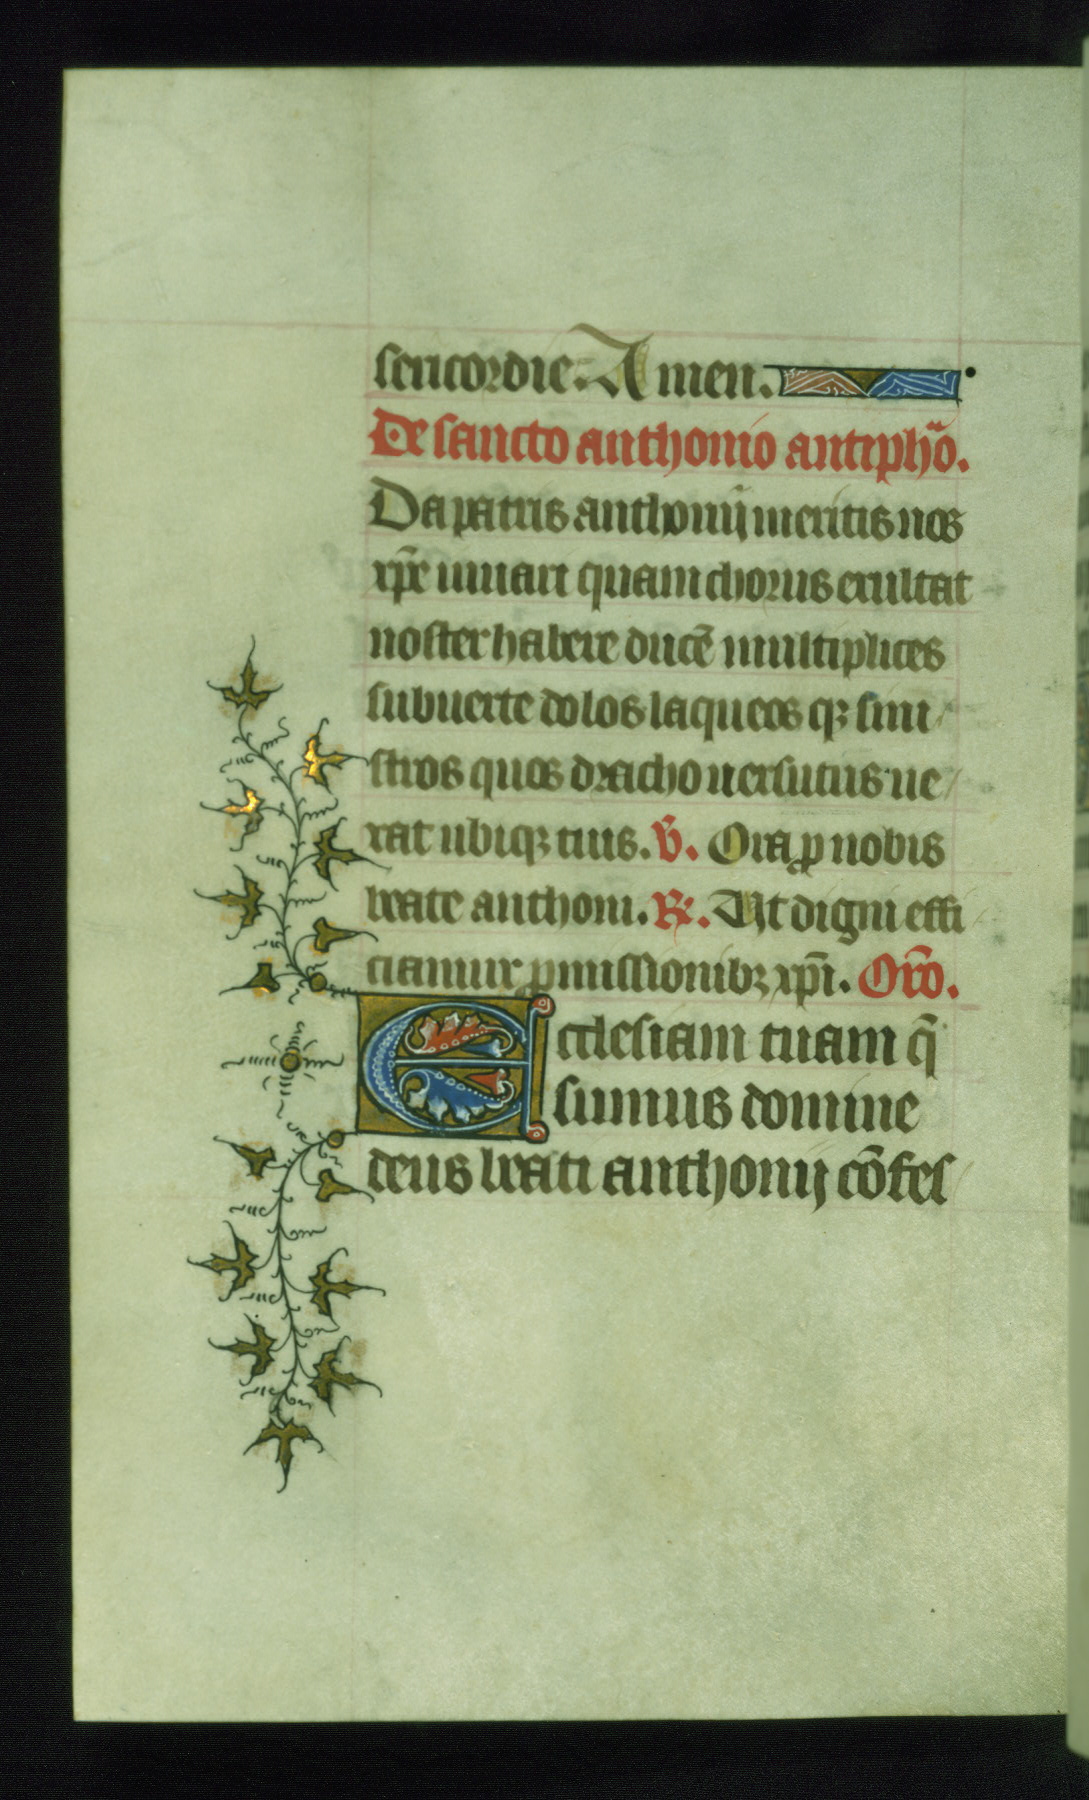 sericordie. Amen.
De sancto anthonio antipho̅.
Da patris anthonij meritis nos
xp̅e iuuari quam chorus exultat
noster habere ducē multiplices
subuerte dolos laqueos qꝫ sini
stros quos dracho uersutus ne
xat ubiqꝫ tuis. ℣. Ora ꝓ nobis
beate anthoni. ℟. Ut digni effi
ciamur ꝓmissionibꝫ xp̅i. Oro̅.
Ecclesiam tuam q̅
sumus domine
deus beati anthonij cōfes